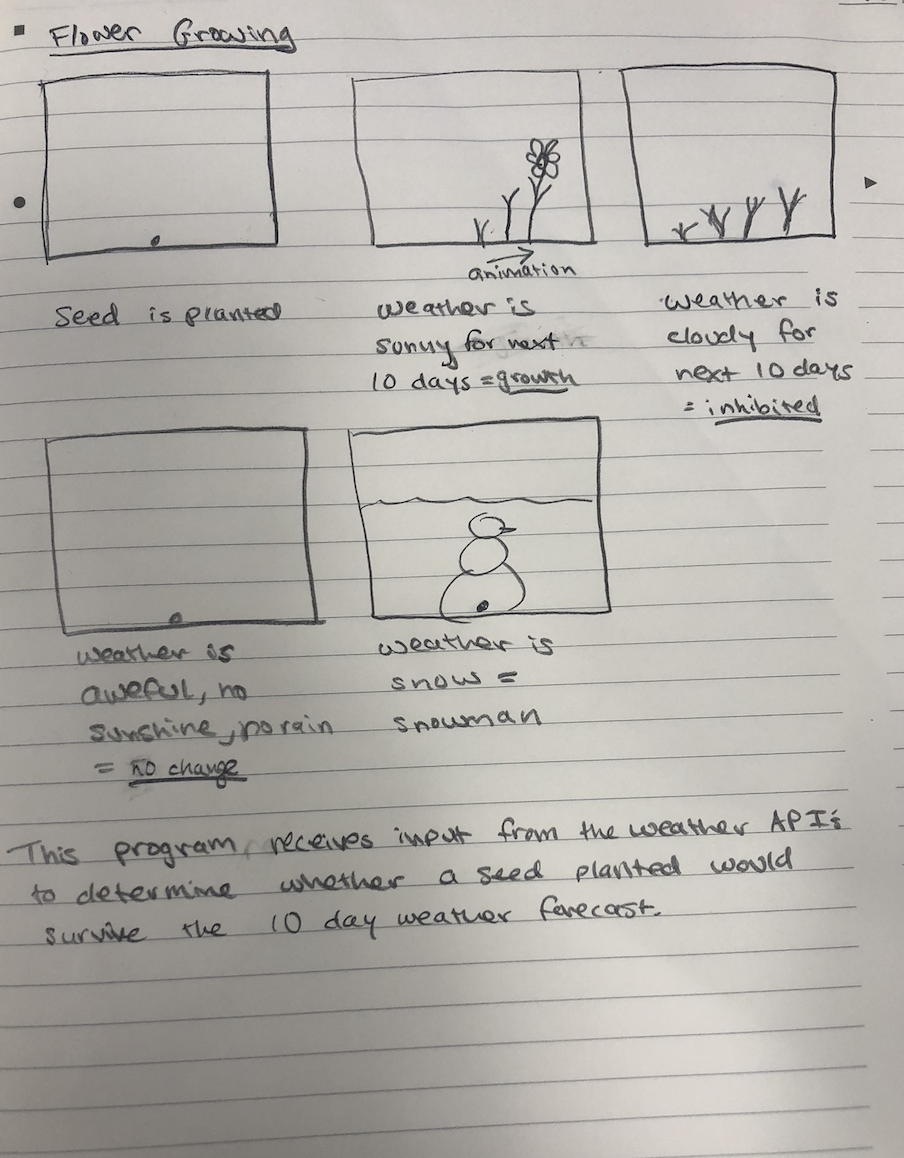 Flower Growing
Seed is planted
animation
weather is
sunny for next
10 days = growth
weather is
cloudy for
next 10 days
= inhibited
weather is
aweful, no
sunshine, no rain
= no change
weather is
snow =
snowman
This program, receives input from the weather API's
to determine whether a seed planted would
survive the 10 day weather forecast.